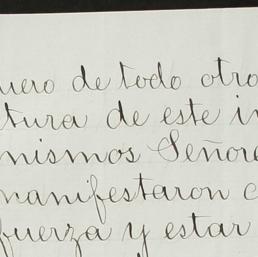 uero de todo otro
tura de este in
mismos Señore
manifestaron c
fuerza y estar